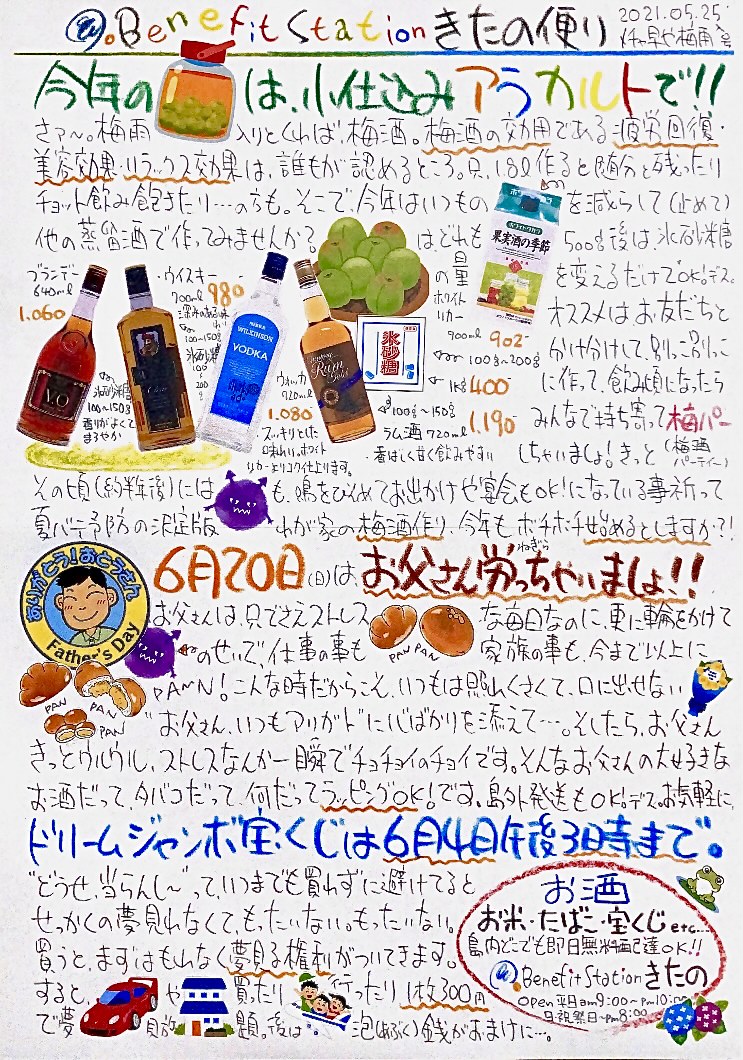 @.Benefit Stationきたの便り
2021.05.25
今年の は、小仕込みアラカルトで!!
さァ〜。梅雨 入りとくれば、梅酒。梅酒の効用である疲労回復・
美容効果・リラックス効果は、誰もが認めるところ。只、1.8ℓ作ると随分と残ったり
チョット飲み飽きたり…の方も。そこで、今年はいつもの を減らして(止めて)
他の蒸留酒で作ってみませんか? は、どれも 500g後は、氷砂糖
の量 を変えるだけでOK!デス。
オススメはお友だちと
かけ分けして、別っこ別っこ
に作って、飲み頃になったら
みんなで持ち寄って梅パー
(梅酒パーティー)
しちゃいましょ!きっと
ブランデー
640ml
1.060
氷砂糖
100〜150g
香りがよくて
まろやか
・ウイスキー
700ml 980
深みのある味わい
100〜150g
氷砂糖
100
200g
WILKINSON
VODKA
ウォッカ
720ml
1.080
・スッキリとした
味わい。ホワイト
リカーよりコク仕上ります。
V.O
Rum
Gold
ホワイト
リカー
900ml 902
100g〜200g
氷砂糖
1kg 400
100g〜150g
1.190
ラム酒 720ml
・香ばしく甘く飲みやすい
ホワイトタカラ
果実酒の季節
その頃(約半年後)には も、鳴をひそめてお出かけや宴会もOK!になっている事祈って
夏バテ予防の決定版 わが家の梅酒作り、今年もボチボチ始めるとしますか?!
ありがとう!おとうさん
Father's Day
6月20日(日)は、お父さん労っちゃいましょ!!
ねぎら
お父さんは、只でさえストレス な毎日なのに、更に輪をかけて
PAN PAN
のせいで、仕事の事も 家族の事も、今まで以上に
PAN PAN PAN PAN
PA〜N!こんな時だからこそ、いつもは照れくさくて、口に出せない
"お父さん、いつもアリガト"に心ばかりを添えて…。そしたら、お父さん
きっとウルウル、ストレスなんか一瞬でチョチョイのチョイです。そんなお父さんの大好きな
お酒だって、タバコだって、何だってラッピングOK!です。島外発送もOK!デス。お気軽に。
ドリームジャンボ宝くじは6月4日午後3日時まで。
"どうせ、当らんし〜"って、いつまでも買わずに避けてると
せっかくの夢見れなくて、もったいない。もったいない。
買うと、まずはもれなく夢見る権利がついてきます。
すると、 や 買ったり 行ったり 1枚300円
で夢見放題。後は 泡(あぶく)銭がおまけに…。
お酒
お米・たばこ・宝くじetc...
島内どこでも即日無料配達OK!!
@.Benefit Station きたの
open 平日am9:00〜pm10:00
日祝祭日〜pm8:00